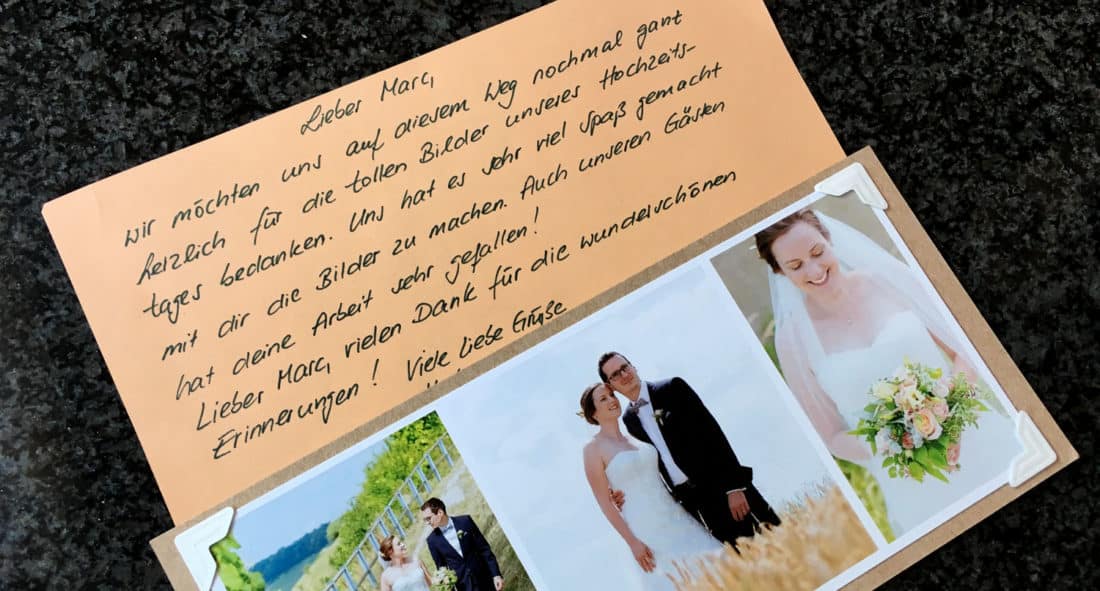 Lieber Marc,
wir möchten uns auf diesem Weg nochmal ganz
herzlich für die tollen Bilder unseres Hochzeits-
tages bedanken. Uns hat es sehr viel Spaß gemacht
mit dir die Bilder zu machen. Auch unseren Gästen
hat deine Arbeit sehr gefallen!
Lieber Marc, vielen Dank für die wunderschönen
Erinnerungen! Viele liebe Grüße